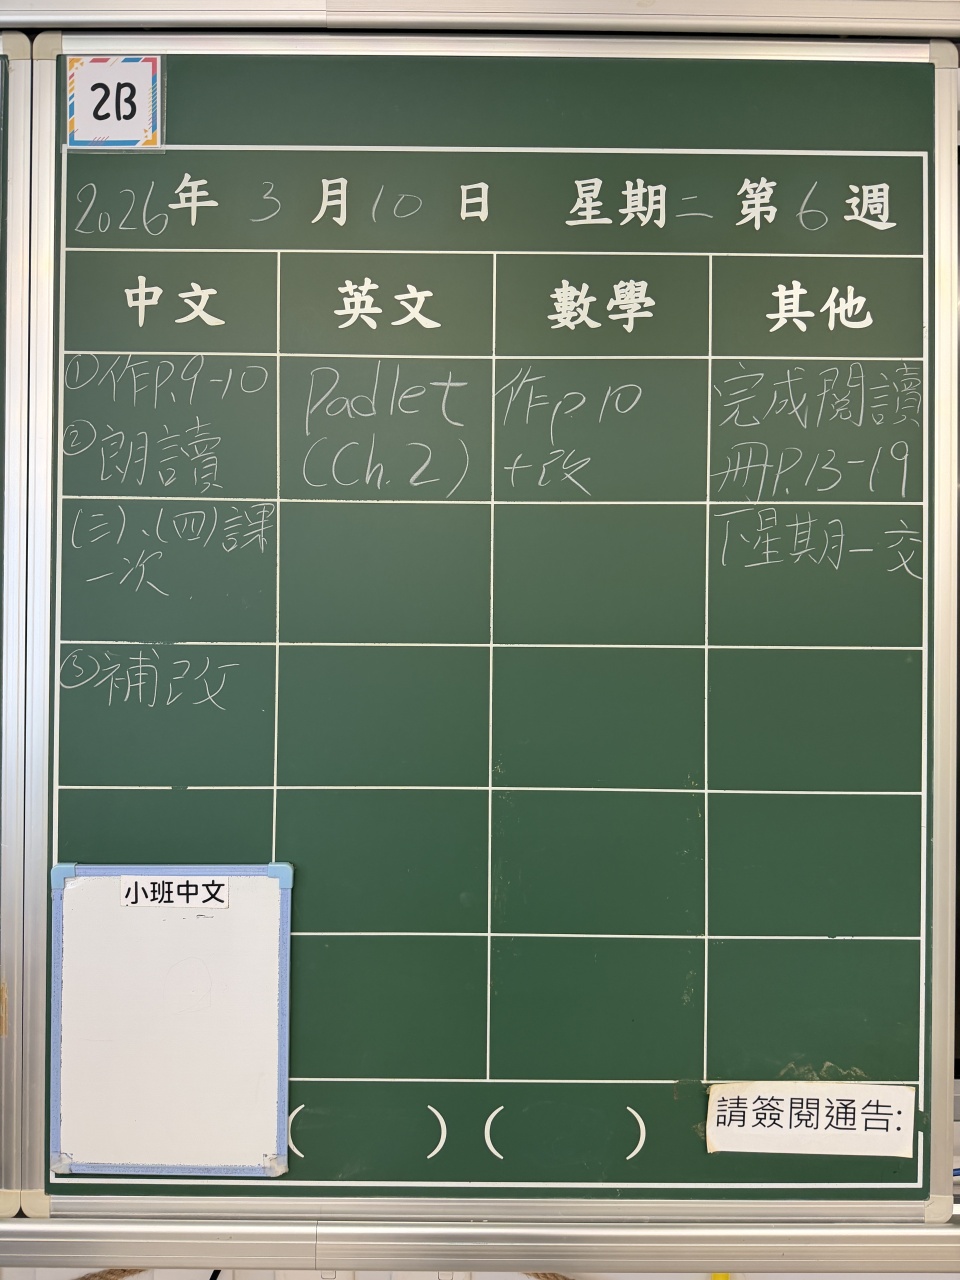 2B
2026年 3月10日 星期二 第6週
中文 英文 數學 其他
①作P.9-10
②朗讀
(三)、(四)課
一次
③補改
Padlet
(Ch.2)
作p10
+改
完成閱讀
冊P.13-19
下星期一交
小班中文
( ) ( )
請簽閱通告: